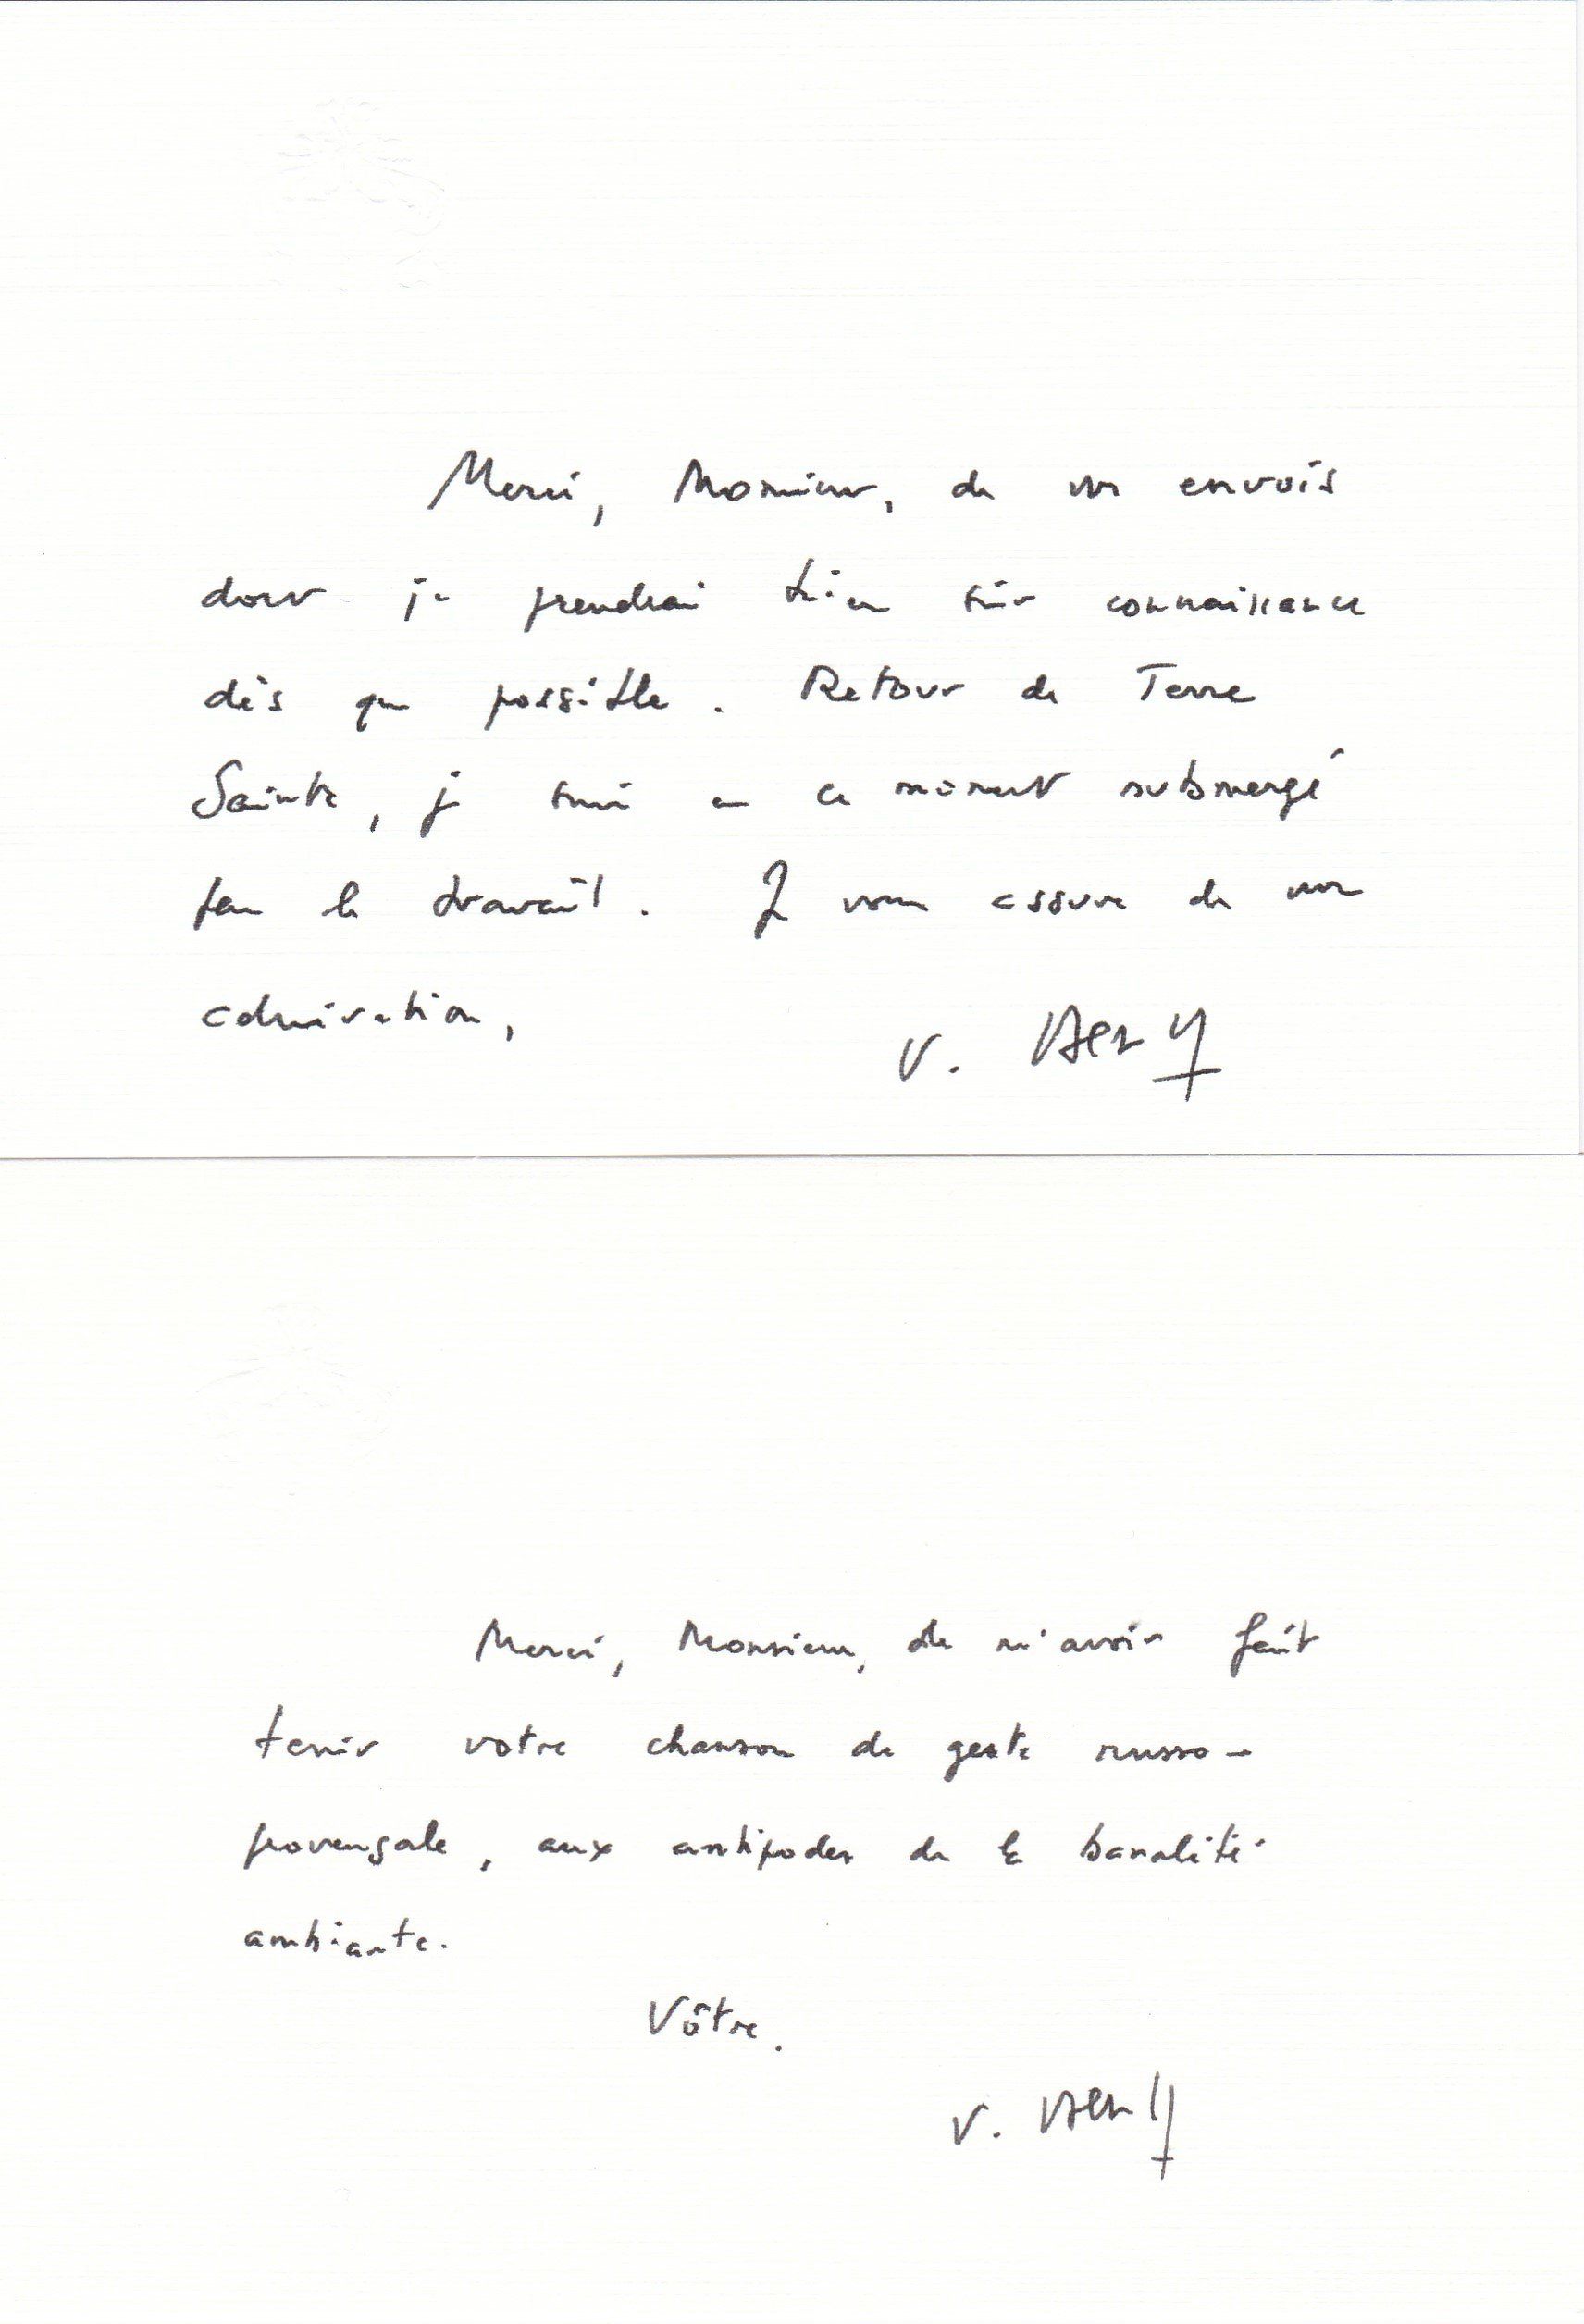 Merci, Monsieur, de vos envois
dont je prendrai bien sûr connaissance
dès que possible. Retour de Terre
Sainte, je suis en ce moment submergé
par le travail. Je vous assure de mon
admiration,
V.
Merci, Monsieur, de m'avoir fait
tenir votre chanson de geste russo-
provençale, aux antipodes de la banalité
ambiante.
Vôtre.
V.